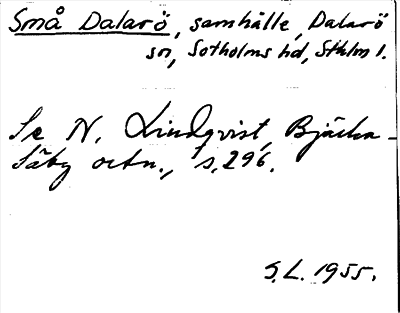 Små Dalarö, samhälle, Dalarö
sn, Sotholms hd, Sthlm l.
Se N. Lindqvist, Bjärka-
Säby ortn., s. 296.
S.L. 1955.